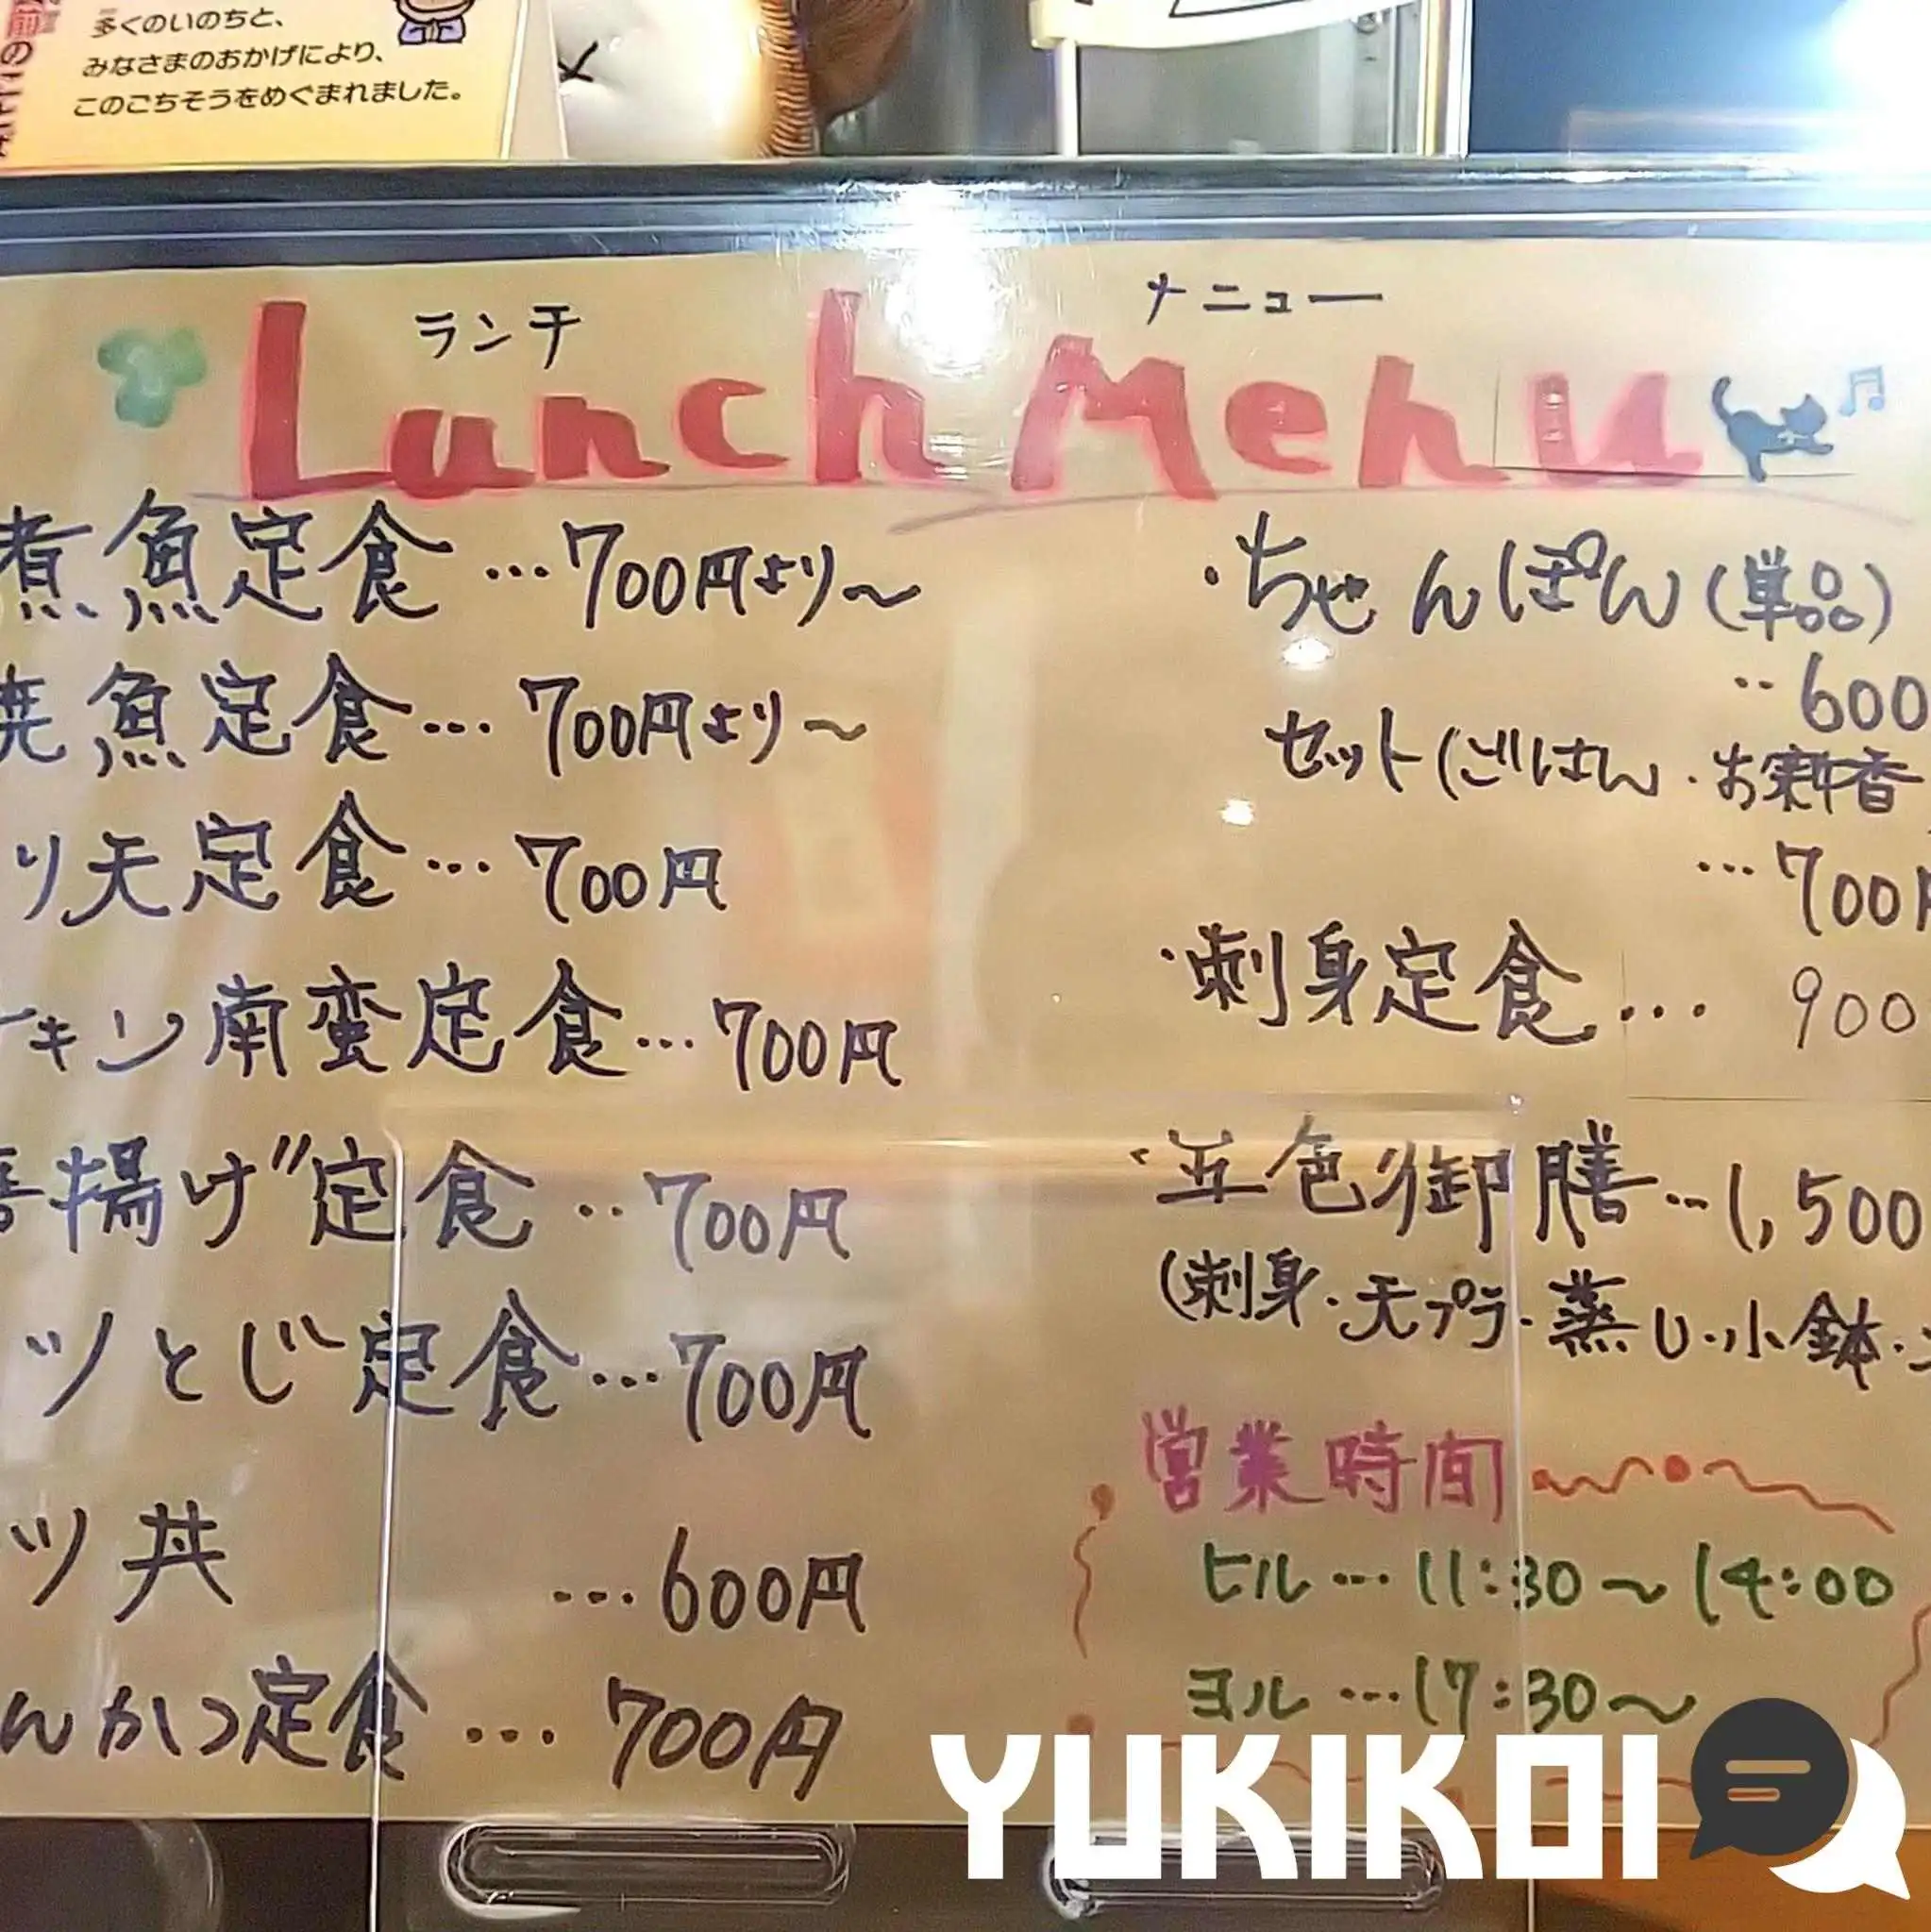 多くのいのちと、
みなさまのおかげにより、
このごちそうをめぐまれました。
ランチ メニュー
Lunch Menu
煮魚定食…700円より〜
焼魚定食…700円より〜
り天定食…700円
キン南蛮定食…700円
揚げ定食…700円
ツとじ定食…700円
ツ丼 …600円
んかつ定食…700円
・ちゃんぽん(単品)
…600
セット(ごはん・お新香
…700円
・刺身定食… 900
・五色御膳…1,500
(刺身・天プラ・蒸し・小鉢・
営業時間
ヒル…11:30〜14:00
ヨル…17:30〜
YUKIKOI